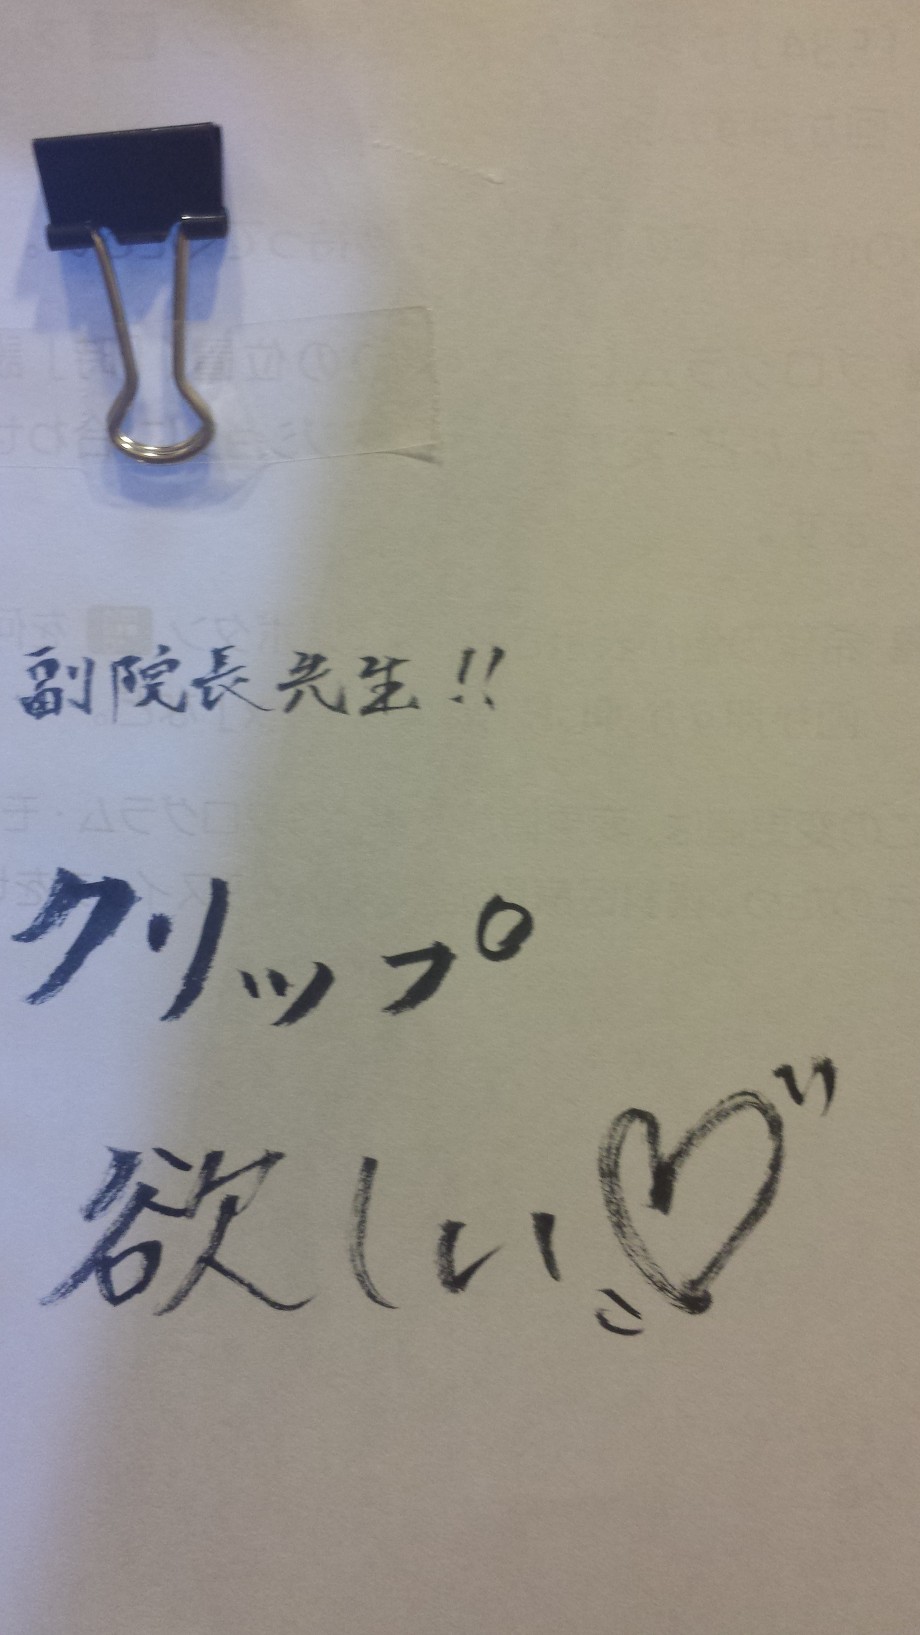 副院長先生!!
クリップ
欲しい♡